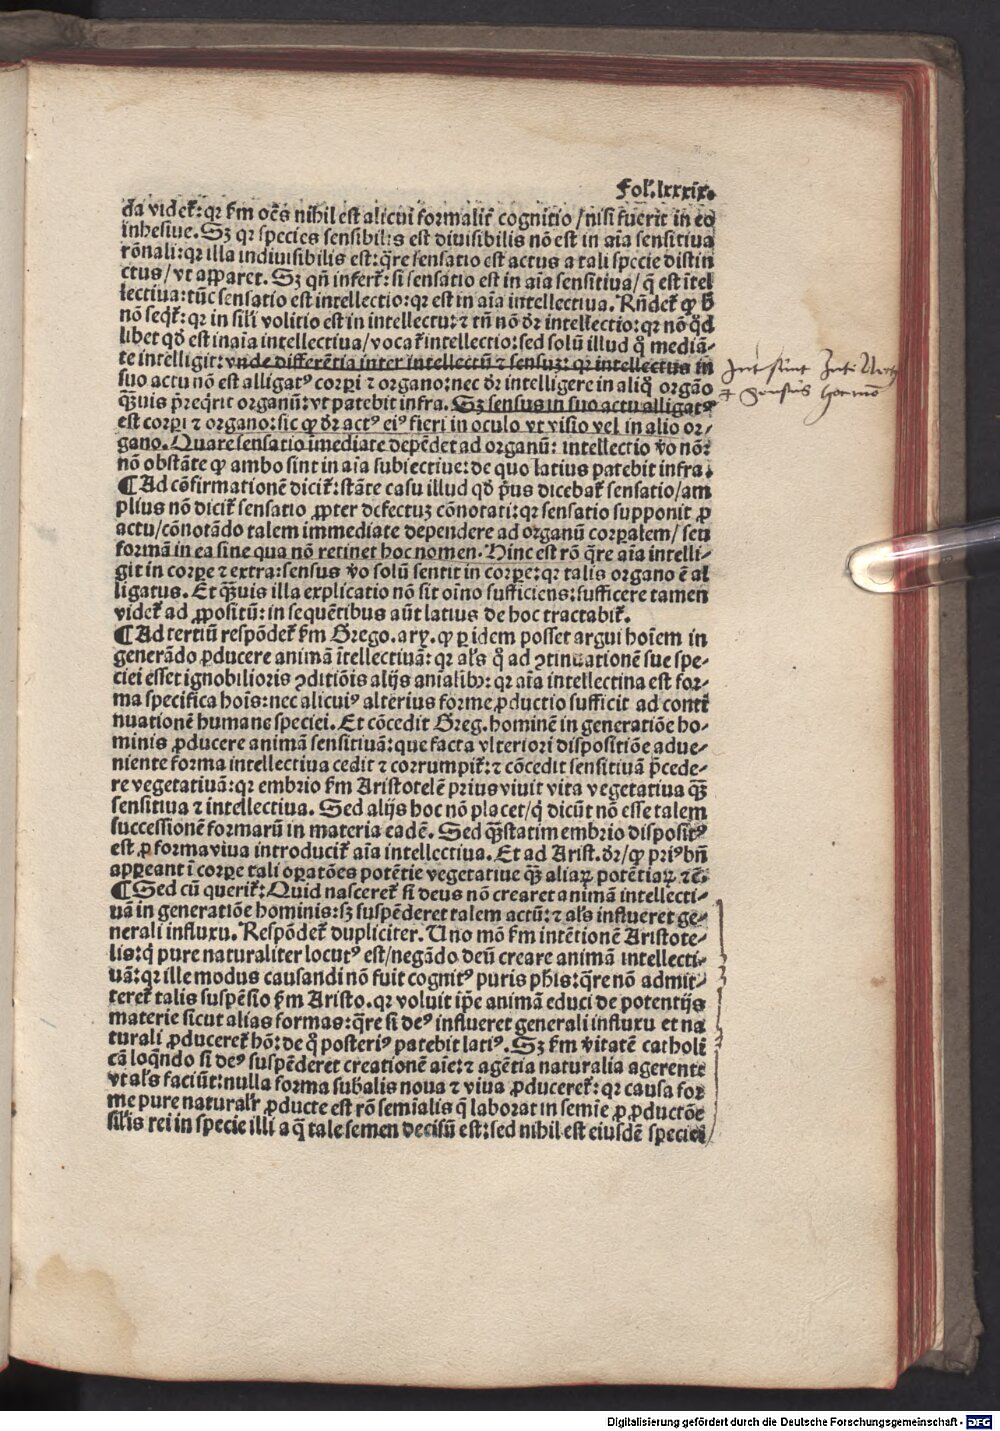 Fol. lxxxix.
da videt᷑: qꝛ ẜm oēs nihil est alicui formalit᷑ cognitio / nisi fuerit in eo
inhesiue. Sꝫ qꝛ species sensibilis est diuisibilis nō est in aīa sensitiua
rōnali: qꝛ illa indiuisibilis est: q̄re sensatio est actus a tali specie distin
ctus / vt apparet. Sꝫ qñ infert᷑: si sensatio est in aīa sensitiua / q̄ est ītel
lectiua: tūc sensatio est intellectio: qꝛ est in aīa intellectiua. Rñdet᷑ ꝙ ꝟ
nō seqt᷑: qꝛ in sili volitio est in intellectu: ⁊ tñ nō dꝛ intellectio: qꝛ nō qd̓
libet qd̓ est in aīa intellectiua / vocat᷑ intellectio: sed solū illud qͦ mediā⸗
te intelligit: vnde differētia inter intellectū ⁊ sensuꝫ: qꝛ intellectus in
suo actu nō est alligatꝰ corpi ⁊ organo: nec dꝛ intelligere in aliqͦ orgāo
qꝫuis p̄reqrit organū: vt patebit infra. Sꝫ sensus in suo actu alligatꝰ
est corpi ⁊ organo: sic ꝙ dꝛ actꝰ eiꝰ fieri in oculo vt visio vel in alio or⸗
gano. Quare sensatio īmediate depēdet ad organū: intellectio ꝟo nō:
nō obstāte ꝙ ambo sint in aīa subiectiue: de quo latius patebit infra.
¶ Ad cōfirmationē dicit᷑: stāte casu illud qd̓ p̄us dicebat᷑ sensatio / am
plius nō dicit᷑ sensatio ꝓpter defectuꝫ cōnotati: qꝛ sensatio supponit ꝓ
actu / cōnotādo talem immediate dependere ad organū corpalem / seu
formā in ea sine qua nō retinet hoc nomen. Hinc est rō q̄re aīa intelli⸗
git in corpe ⁊ extra: sensus ꝟo solū sentit in corpe: qꝛ talis organo ē al
ligatus. Et qꝫuis illa explicatio nō sit oīno sufficiens: sufficere tamen
videt᷑ ad ꝓpositū: in sequētibus aūt latius de hoc tractabit᷑.
¶ Ad tertiū respōdet᷑ ẜm Grego. ary. ꝙ ꝑ idem posset argui hoīem in
generādo ꝓducere animā ītellectiuā: qꝛ al̓s qͦ ad ꝯtinuationē sue spe⸗
ciei esset ignobilioris ꝯditiōis alijs anīalibꝰ: qꝛ aīa intellectiua est for⸗
ma specifica hoīs: nec alicuiꝰ alterius forme ꝓductio sufficit ad conti
nuationē humane speciei. Et cōcedit Greg. hominē in generatiōe ho⸗
minis ꝓducere animā sensitiuā: que facta vlteriori dispositiōe adue⸗
niente forma intellectiua cedit ⁊ corrumpit᷑: ⁊ cōcedit sensitiuā p̄cede⸗
re vegetatiuā: qꝛ embrio ẜm Aristotelē prius viuit vita vegetatiua qꝫ
sensitiua ⁊ intellectiua. Sed alijs hoc nō placet / q̇ dicūt nō esse talem
successionē formarū in materia eadē. Sed qꝫ statim embrio dispositꝰ
est ꝓ forma viua introducit᷑ aīa intellectiua. Et ad Arist. dꝛ / ꝙ priꝰ bñ
appeant ī corpe tali opatōes potētie vegetatiue qꝫ aliaꝝ potētiaꝝ ⁊c̄.
¶ Sed cū querit᷑: Quid nasceret᷑ si deus nō crearet animā intellecti⸗
uā in generatiōe hominis: sꝫ suspēderet talem actū: ⁊ al̓s influeret ge⸗
nerali influxu. Respōdet᷑ dupliciter. Uno mō ẜm intētionē Aristote⸗
lis: q̇ pure naturaliter locutꝰ est / negādo deū creare animā intellecti⸗
uā: qꝛ ille modus causandi nō fuit cognitꝰ puris phis: q̄re nō admit⸗
teret᷑ talis suspēsio ẜm Aristo. qꝛ voluit ip̄e animā educi de potentijs
materie sicut alias formas: q̄re si deꝰ influeret generali influxu et na
turali ꝓduceret᷑ hō: de qͦ posteriꝰ patebit latiꝰ. Sꝫ ẜm ꝟitatē catholi
cā loqndo si deꝰ suspēderet creationē aīe: ⁊ agētia naturalia agerent
vt al̓s faciūt: nulla forma sub̄alis noua ⁊ viua ꝓduceret᷑: qꝛ causa for
me pure natural̓r ꝓducte est rō semīalis q̄ laborat in semīe ꝓ ꝓductōe
sil̓is rei in specie illi a q̄ tale semen decisū est: sed nihil est eiusdē speciei
Digitalisierung gefördert durch die Deutsche Forschungsgemeinschaft - DFG